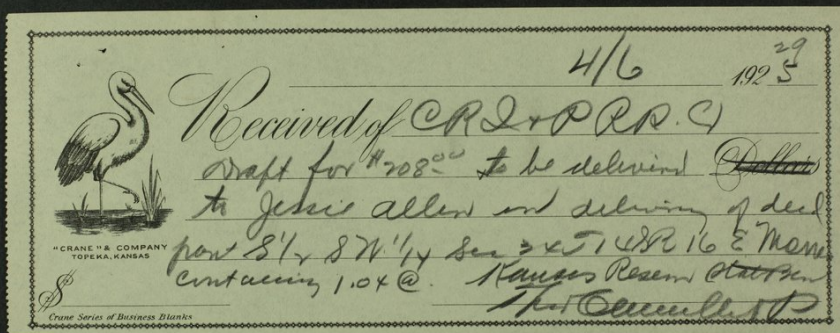 4/6 1925
29
Received of C R I & P R R. Co
Draft for $208.00 to be delivered Dollars
to Jessie Allen on delivery of deed
part S 1/2 S W 1/4 Sec 24 T 14 R 16 E
containing 1.04 @. Kansas Reserve State
"CRANE" & COMPANY
TOPEKA, KANSAS
$
Crane Series of Business Blanks